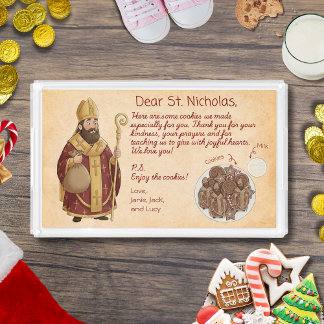 Dear St. Nicholas,
Here are some cookies we made
especially for you. Thank you for your
kindness, your prayers and for
teaching us to give with joyful hearts.
We love you!
P.S.
Enjoy the cookies!
Love,
Janie, Jack,
and Lucy
Cookies
Milk